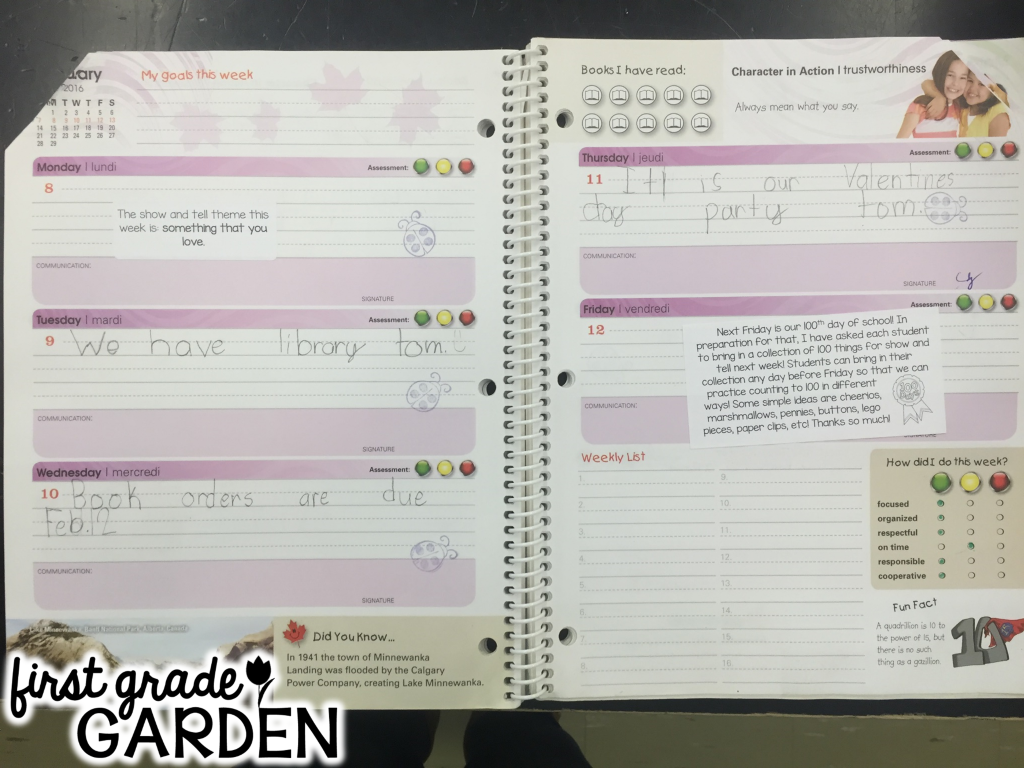 uary
2016
My goals this week
M T W T F S
1 2 3 4 5 6
7 8 9 10 11 12 13
14 15 16 17 18 19 20
21 22 23 24 25 26 27
28 29
Monday | lundi
Assessment:
8
The show and tell theme this
week is something that you
love.
COMMUNICATION:
SIGNATURE
Tuesday | mardi
Assessment:
9 We have library tom.
COMMUNICATION:
SIGNATURE
Wednesday | mercredi
Assessment:
10 Book orders are due
Feb.12
COMMUNICATION:
SIGNATURE
Lake Minnewanka, Banff National Park, Alberta, Canada
Did You Know...
In 1941 the town of Minnewanka
Landing was flooded by the Calgary
Power Company, creating Lake Minnewanka.
Books I have read:
Character in Action | trustworthiness
Always mean what you say.
Thursday | jeudi
Assessment:
11 is our Valentines
day party tom.
COMMUNICATION:
SIGNATURE
Friday | vendredi
Assessment:
12
Next Friday is our 100th day of school! In
preparation for that, I have asked each student
to bring in a collection of 100 things for show and
tell next week! Students can bring in their
collection any day before Friday so that we can
practice counting to 100 in different
ways! Some simple ideas are cheerios,
marshmallows, pennies, buttons, lego
pieces, paper clips, etc! Thanks so much!
100
Weekly List
1.
2.
3.
4.
5.
6.
7.
8.
9.
10.
11.
12.
13.
14.
15.
16.
How did I do this week?
focused
organized
respectful
on time
responsible
cooperative
Fun Fact
A quadrillion is 10 to
the power of 15, but
there is no such
thing as a gazillion.
10
first grade
GARDEN